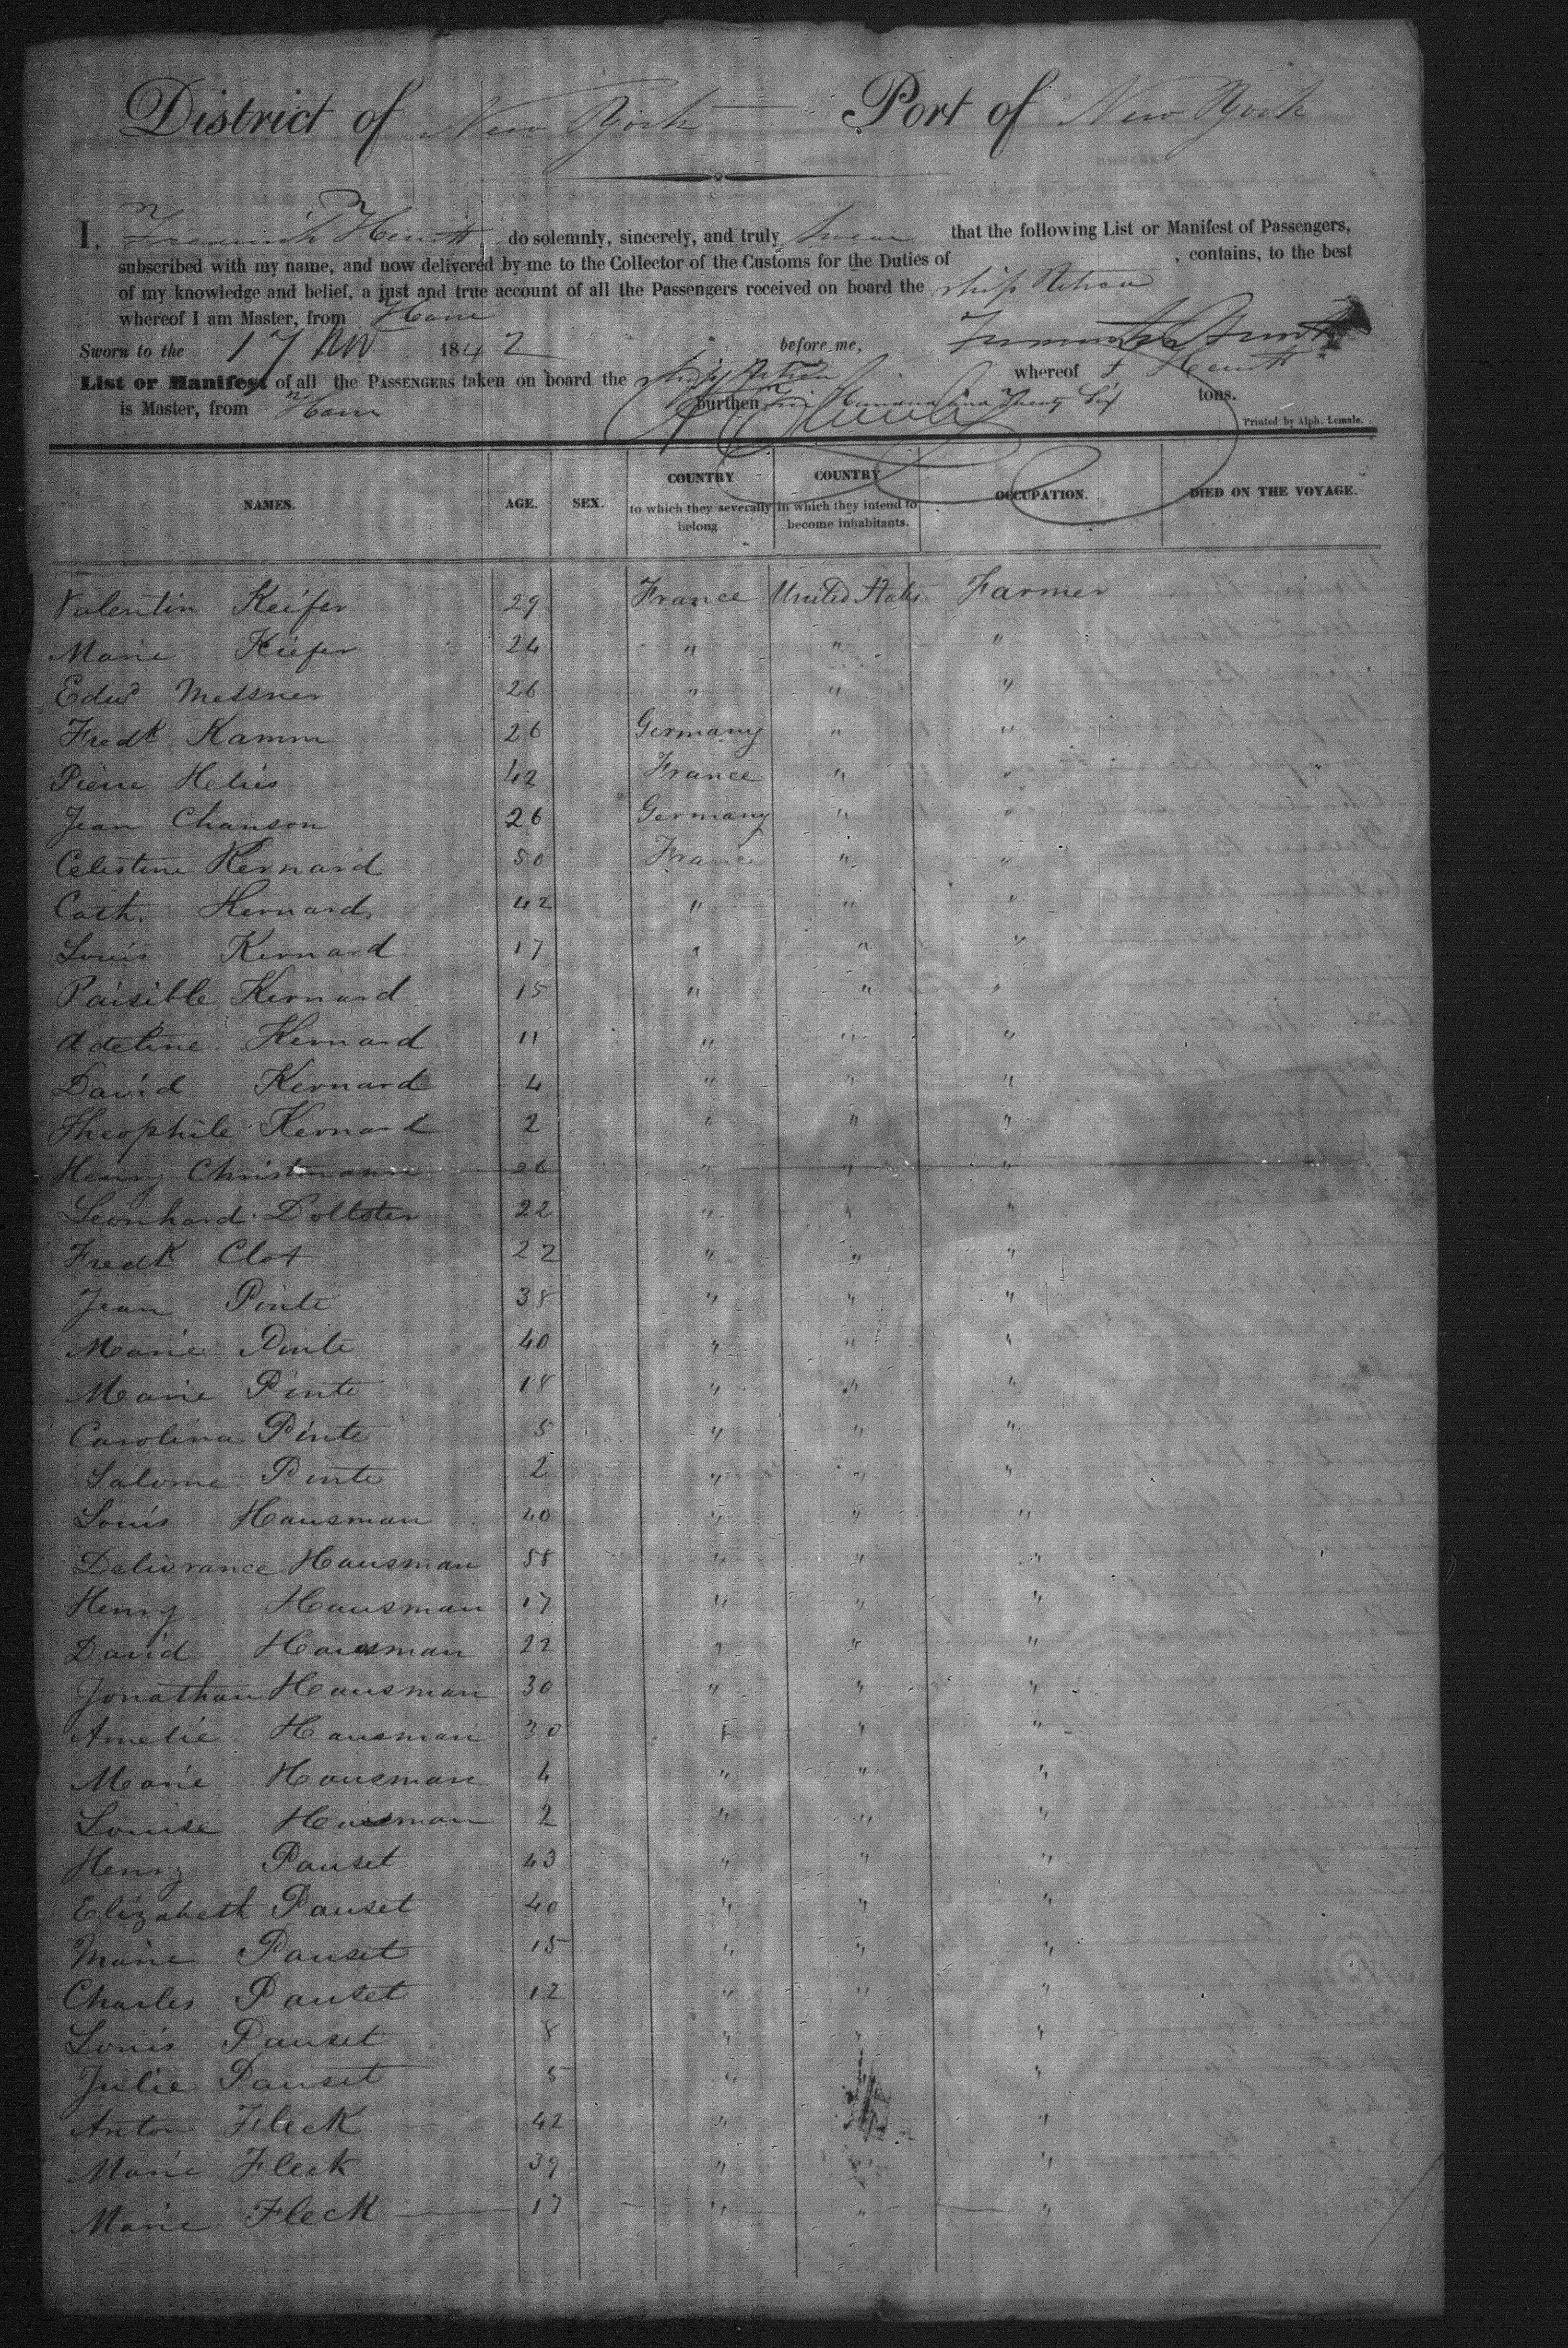 District of New York Port of New York
I, Frederick Hewitt do solemnly, sincerely, and truly swear that the following List or Manifest of Passengers,
subscribed with my name, and now delivered by me to the Collector of the Customs for the Duties of , contains, to the best
of my knowledge and belief, a just and true account of all the Passengers received on board the ship
whereof I am Master, from Havre
Sworn to the 17 Nov 1842 before me,
List or Manifest of all the PASSENGERS taken on board the ship whereof F Hewitt
is Master, from Havre burthen Hundred and Twenty Six tons.
Printed by Alph. Lemale.
NAMES. AGE. SEX. COUNTRY to which they severally belong COUNTRY in which they intend to become inhabitants. OCCUPATION. DIED ON THE VOYAGE.
Valentin Keifer 29 France United States Farmer
Marie Kiefer 24 " " "
Edwd Messner 26 " " "
Fredk Kamm 26 Germany " "
Pierre Helies 42 France " "
Jean Chanson 26 Germany " "
Celestine Kernard 50 France " "
Cath. Kernard 42 " " "
Louis Kernard 17 " " "
Paisible Kernard 15 " " "
Adeline Kernard 11 " " "
David Kernard 4 " " "
Theophile Kernard 2 " " "
Henry Christmann 26 " " "
Leonhard Dollster 22 " " "
Fredk Clot 22 " " "
Jean Pinte 38 " " "
Marie Pinte 40 " " "
Marie Pinte 18 " " "
Carolina Pinte 5 " " "
Salome Pinte 2 " " "
Louis Hausman 40 " " "
Delivrance Hausman 58 " " "
Henry Hausman 17 " " "
David Hausman 22 " " "
Jonathan Hausman 30 " " "
Amelie Hausman 30 " " "
Marie Hausman 4 " " "
Louise Hausman 2 " " "
Henry Pauset 43 " " "
Elizabeth Pauset 40 " " "
Marie Pauset 15 " " "
Charles Pauset 12 " " "
Louis Pauset 8 " " "
Julie Pauset 5 " "
Anton Fleck 42 " "
Marie Fleck 39 " "
Marie Fleck 17 " " "